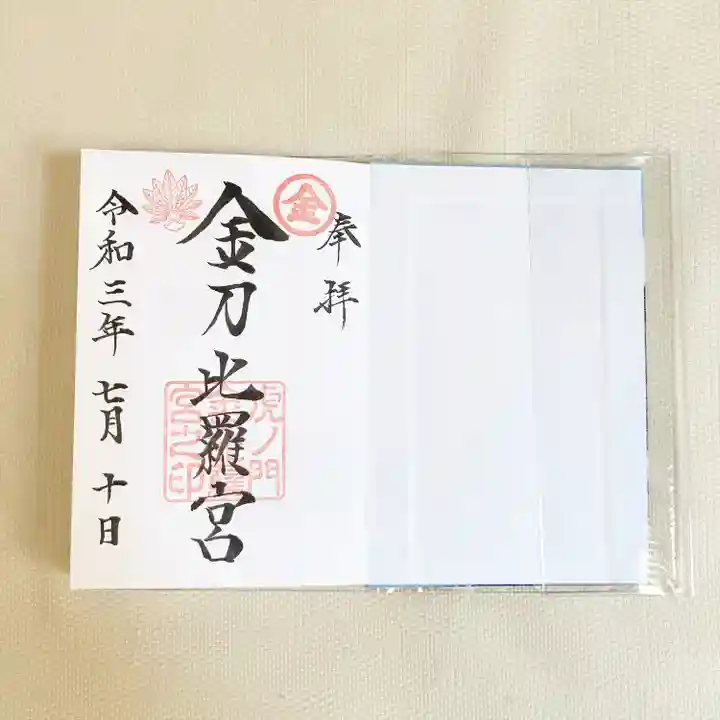 奉拝
金
金刀比羅宮
虎ノ門
宮之印
令和三年七月十日